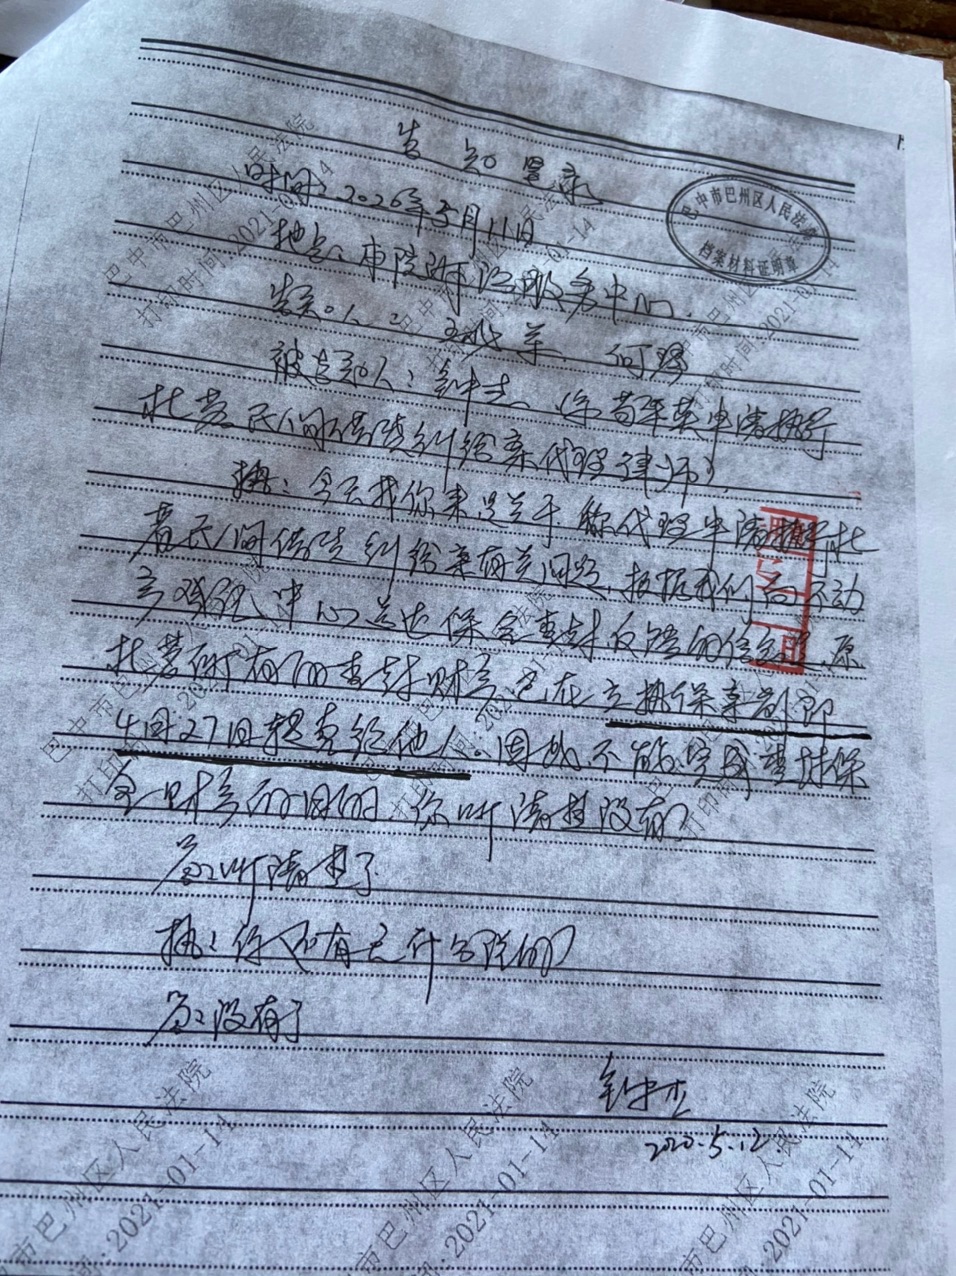 告知笔录
时间：2020年5月11日
地点：本院诉讼服务中心
告知人： 何
被告知人： （系 申请执行
杜 民间借贷纠纷案代理律师）
执：今天找你来是关于你代理申请执行杜
民间借贷纠纷案有关问题，根据我们向不动
产登记中心送达保全查封反馈的信息，原
杜 所有的查封财产已在立执保案前即
4月27日提卖给他人，因此不能实现查封保
全财产的目的，你听清楚没有？
答：听清楚了
执：你还有无什么说的？
答：没有了
2020.5.12
巴中市巴州区人民法院
档案材料证明章
巴中市巴州区人民法院
打印时间：2021-01-14